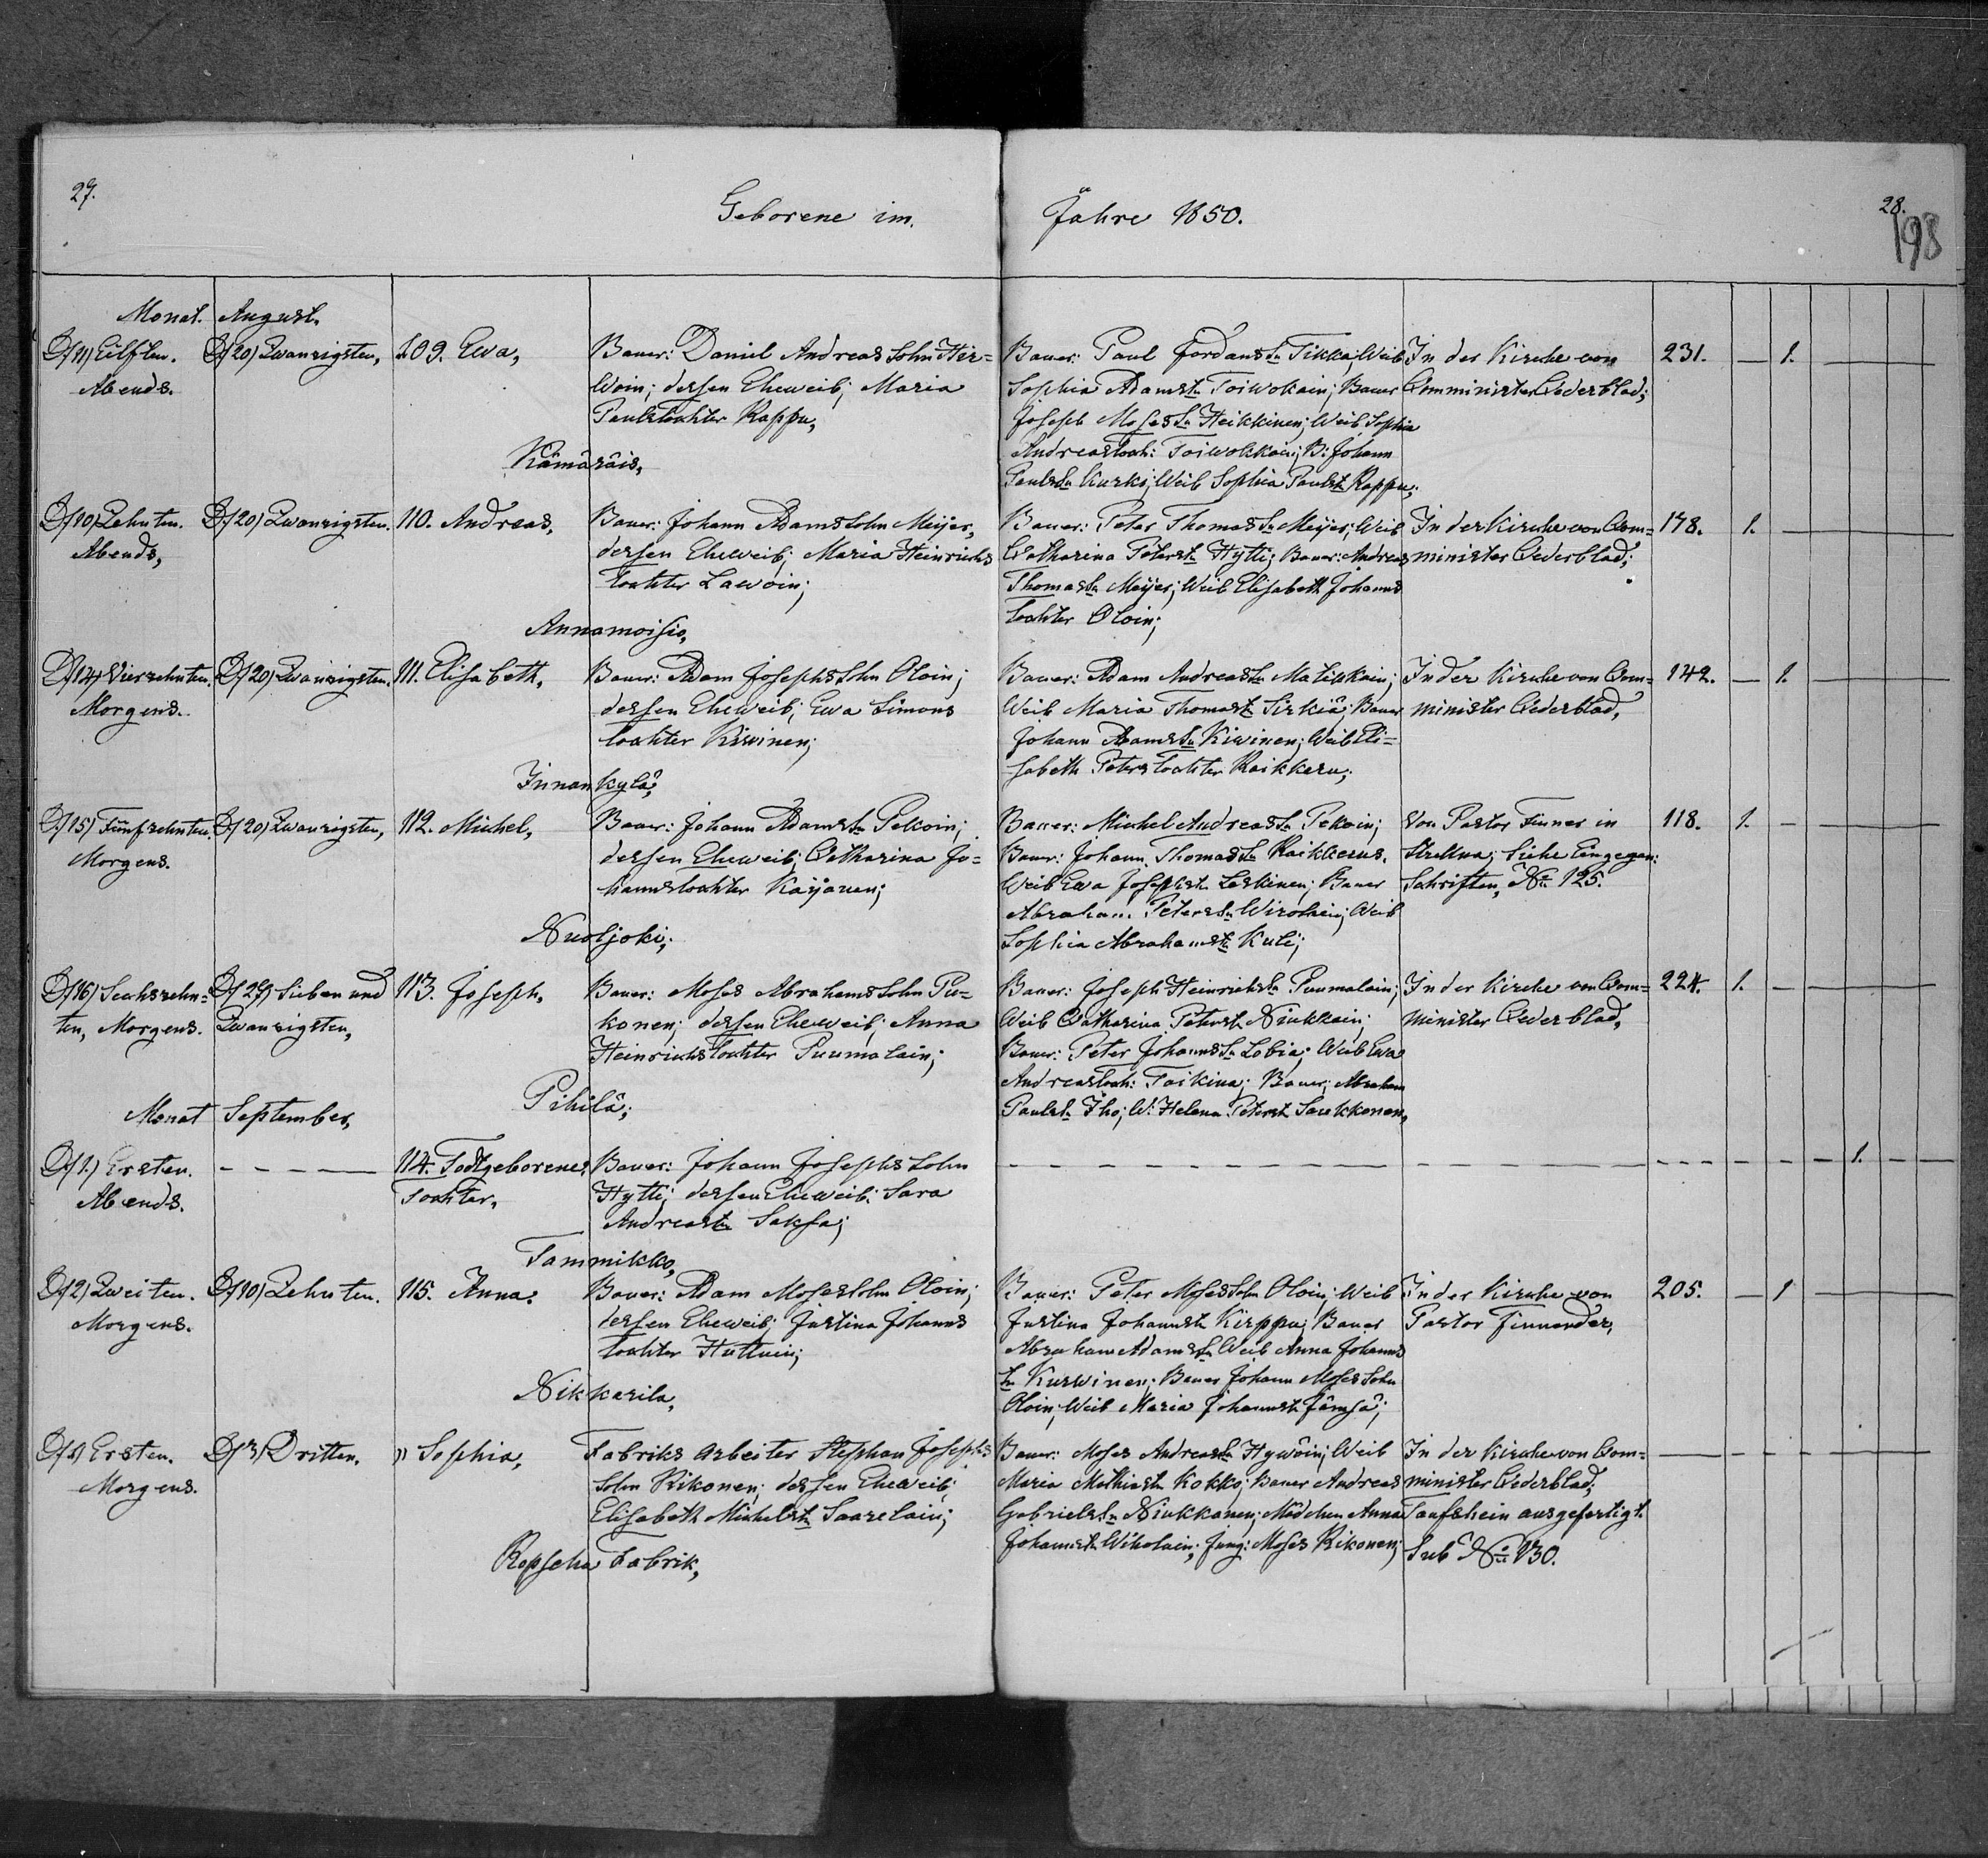 27.
Geborene im.
Jahre 1850.
28.
198
Monat. August.
D/11) Eilften.
Abends.
D/20) Zwanzigsten,
109. Ewa,
Bauer: Daniel Andreas Sohn Hir=
woin; dessen Eheweib; Maria
Paulstochter Rappu,
Kämäräis,
Bauer: Paul Jordans Sn Tikka; Weib
Sophia Adamstr Toiwokain; Bauer
Joseph Moses Sn Heikkinen; Weib Sophia
Andreastoch: Toiwokkain; B: Johann
Pauls Sn Kurki; Weib Sophia Paulstr Rappu;
In der Kirche von
Comminister Cederblad;
231. — 1.
D/10) Zehnten.
Abends,
D/20) Zwanzigsten.
110. Andreas,
Bauer: Johann Adams Sohn Meijer,
dessen Eheweib; Maria Heinrichs
tochter Lawoin;
Annamoisio,
Bauer: Peter Thomas Sn Meijer; Weib
Catharina Peterstr Hytti; Bauer: Andreas
Thomas Sn Meijer; Weib Elisabeth Johanns
tochter Oloin;
In der Kirche von Com=
minister Cederblad;
178. 1.
D/14) Vierzehnten.
Morgens.
D/20) Zwanzigsten.
111. Elisabeth,
Bauer: Adam Josephs Sohn Oloin;
dessen Eheweib; Ewa Simons
tochter Kiwinen;
Innankylä,
Bauer: Adam Andreas Sn Matikkain;
Weib Maria Thomastr Sirkiä; Bauer
Johann Adams Sn Kiwinen; Weib Eli=
sabeth Peterstochter Raikkeru;
In der Kirche von Com=
minister Cederblad,
142. — 1.
D/15) Fünfzehnten.
Morgens.
D/20) Zwanzigsten,
112. Michel,
Bauer: Johann Adams Sn Pekoin;
dessen Eheweib; Catharina Jo=
hannstochter Karjanen;
Nuoljoki;
Bauer: Michel Andreas Sn Pekoin;
Bauer: Johann Thomas Sn Raikkerus.
Weib Ewa Josephstr Leskinen; Bauer
Abraham Peters Sn Wirolain; Weib
Sophia Abrahamstr Kuli;
Von Pastor Finner in
Strellna; Siehe Eingegan:
Schriften, No 125.
118. 1. —
D/16) Sechszehn=
ten, Morgens.
D/27) Sieben und
Zwanzigsten,
113. Joseph,
Bauer: Moses Abrahams Sohn Pu=
konen; dessen Eheweib; Anna
Heinrichstochter Puumalain;
Pihilä;
Bauer: Joseph Heinrichs Sn Puumalain;
Weib Catharina Peterstr Niukkain;
Bauer: Peter Johanns Sn Lobia; Weib Ewa
Andreastoch: Toikina; Bauer; Abraham
Pauls Sn Iho; W: Helena Peterstr Saukkonen,
In der Kirche von Com=
minister Cederblad,
224. 1. —
Monat September,
D/1.) Ersten.
Abends.
114. Todtgeborenes
Tochter,
Bauer: Johann Josephs Sohn
Hytti; dessen Eheweib; Sara
Andreastr Saksa;
Tammikko,
1.
D/2) Zweiten.
Morgens.
D/10) Zehnten.
115. Anna.
Bauer: Adam Moses Sohn Oloin;
dessen Eheweib; Justina Johanns
tochter Huttuin;
Nikkerila,
Bauer: Peter Moses Sohn Oloin; Weib
Justina Johannstr Kirppu; Bauer
Abraham Adams Sn Weib Anna Johanns
tr Kurwinen; Bauer Johann Moses Sohn
Oloin; Weib Maria Johannstr Jämsä;
In der Kirche von
Pastor Finnander,
205. — 1
D/1) Ersten.
Morgens.
D/3) Dritten.
" Sophia,
Fabriks arbeiter Stephan Josephs
Sohn Rikonen; dessen Eheweib;
Elisabeth Michelstr Saarelain;
Ropscha Fabrik,
Bauer: Moses Andreas Sn Hywöin; Weib
Maria Mathiastr Kokko; Bauer Andreas
Gabriels Sn Niukkanen; Mädchen Anna
Johannstr Wiholain; Jung: Moses Rikonen;
In der Kirche von Com=
minister Cederblad;
Taufschein ausgefertigt.
Sub No 130.